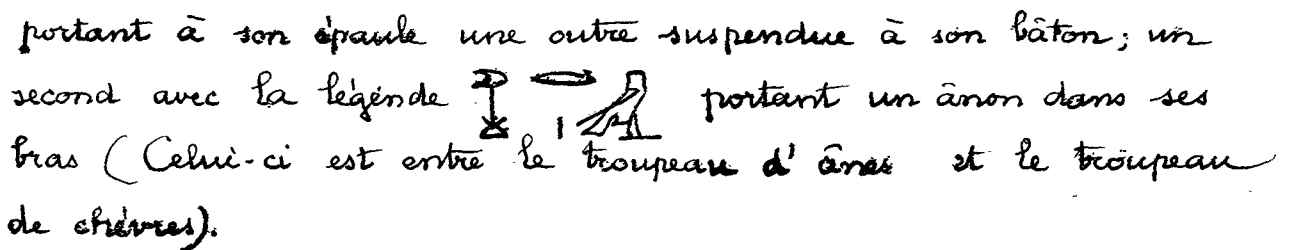 portant à son épaule une outre suspendue à son bâton; un
second avec la légende portant un ânon dans ses
bras (Celui-ci est entre le troupeau d'ânes et le troupeau
de chèvres).